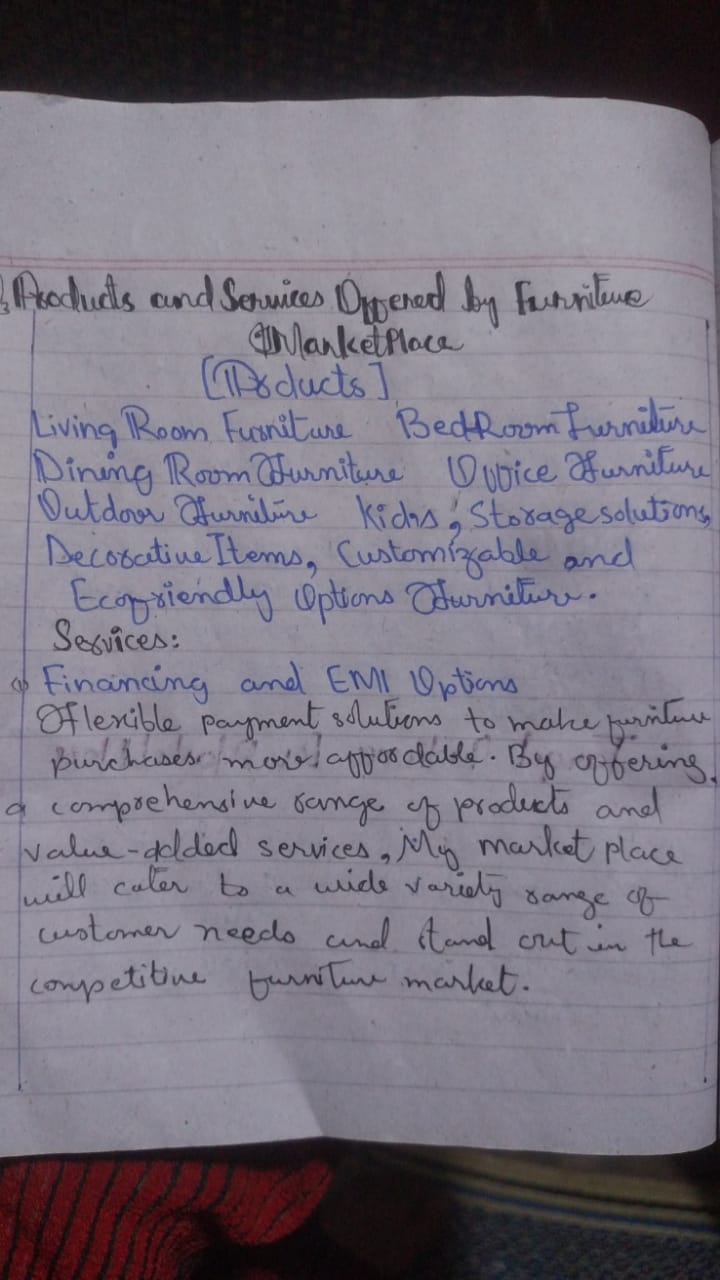 3 Products and Services Offered by Furniture
MarketPlace
[Products]
Living Room Furniture BedRoom Furniture
Dining Room Furniture Office Furniture
Outdoor Furniture Kids, Storage solutions,
Decorative Items, Customizable and
Ecofriendly Options Furniture.
Services:
Financing and EMI Options
Flexible payment solutions to make furniture
purchases more affordable. By offering
a comprehensive range of products and
value-added services, My market place
will cater to a wide variety range of
customer needs and stand out in the
competitive furniture market.